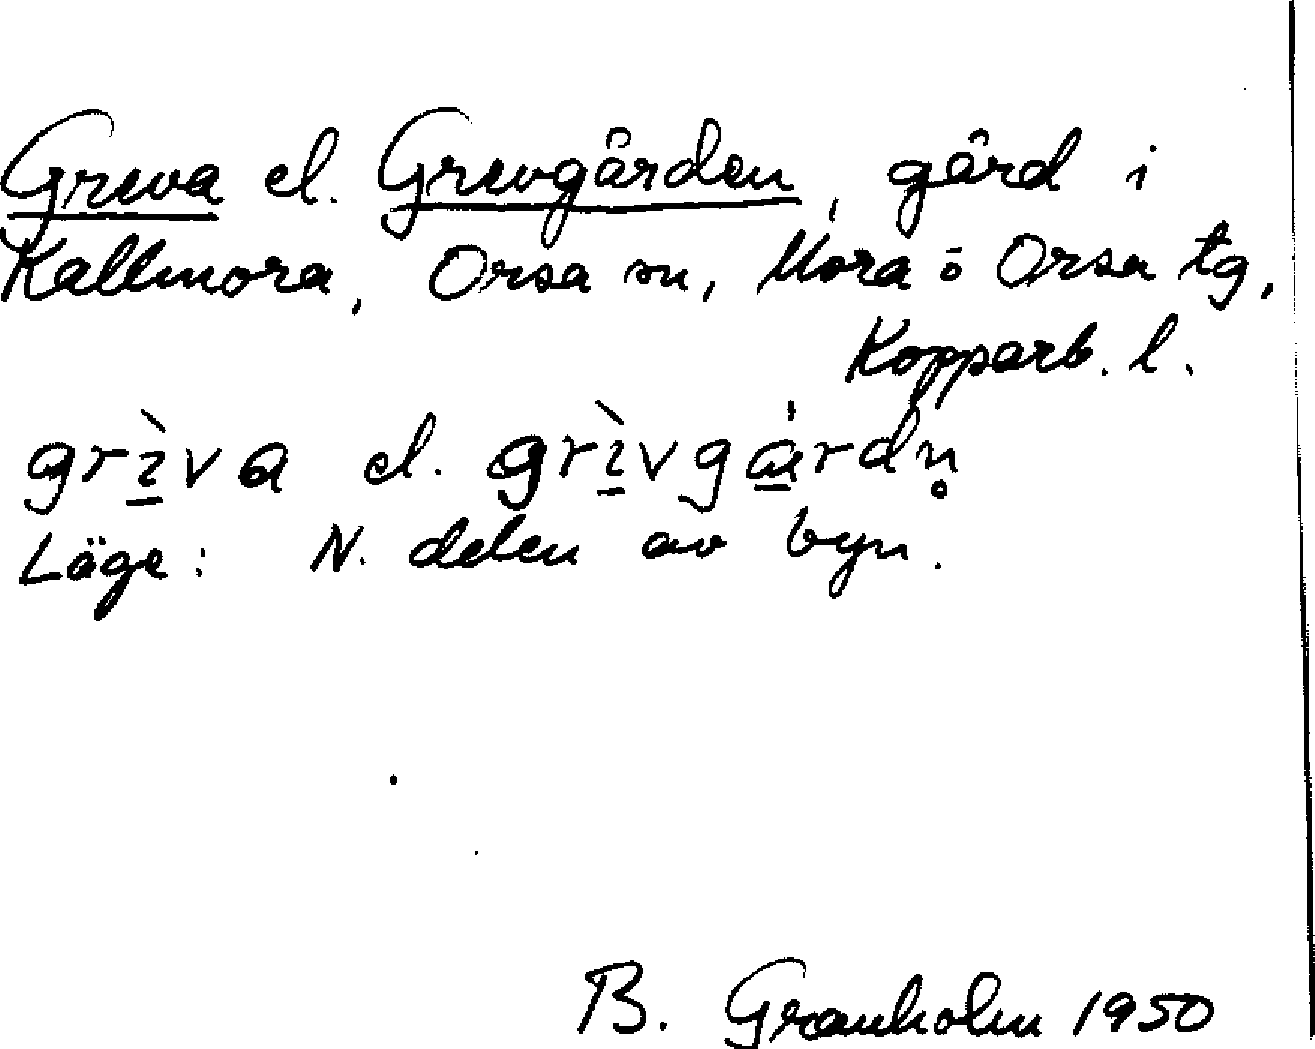 Greva el. Grevgården, gård i
Kallmora, Orsa sn, Mora o Orsa tg,
Kopparb. l.
grì̱va el. grì̱vgá̱rdn̥
Läge: N. delen av byn.
B. Granholm 1950